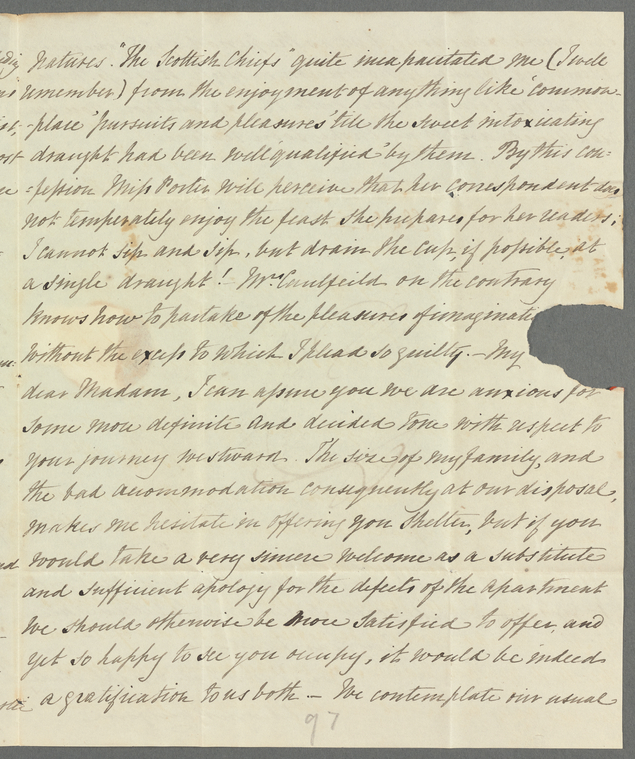 natures. "The Scottish Chiefs" quite incapacitated me (I well
remember) from the enjoyment of anything like 'common-
-place' pursuits and pleasures' till the sweet intoxicating
draught had been well 'qualified' by them. By this con-
-fession Miss Porter will perceive that her correspondent does
not temperately enjoy the feast she prepares for her readers;
I cannot sip and sip, but drain the cup, if possible, at
a single draught! Mrs. Caulfeild on the contrary
knows how to partake of the pleasures of imaginati
without the excess to which I plead so guilty. - My
dear Madam, I can assure you we are anxious for
some more definite and decided tone with respect to
your journey westward. The size of my family, and
the bad accommodation consequently at our disposal,
makes me hesitate in offering you shelter, but if you
would take a very sincere welcome as a substitute
and sufficient apology for the defects of the apartment
we should otherwise be more satisfied to offer, and
yet so happy to see you occupy, it would be indeed
a gratification to us both - We contemplate our usual
97